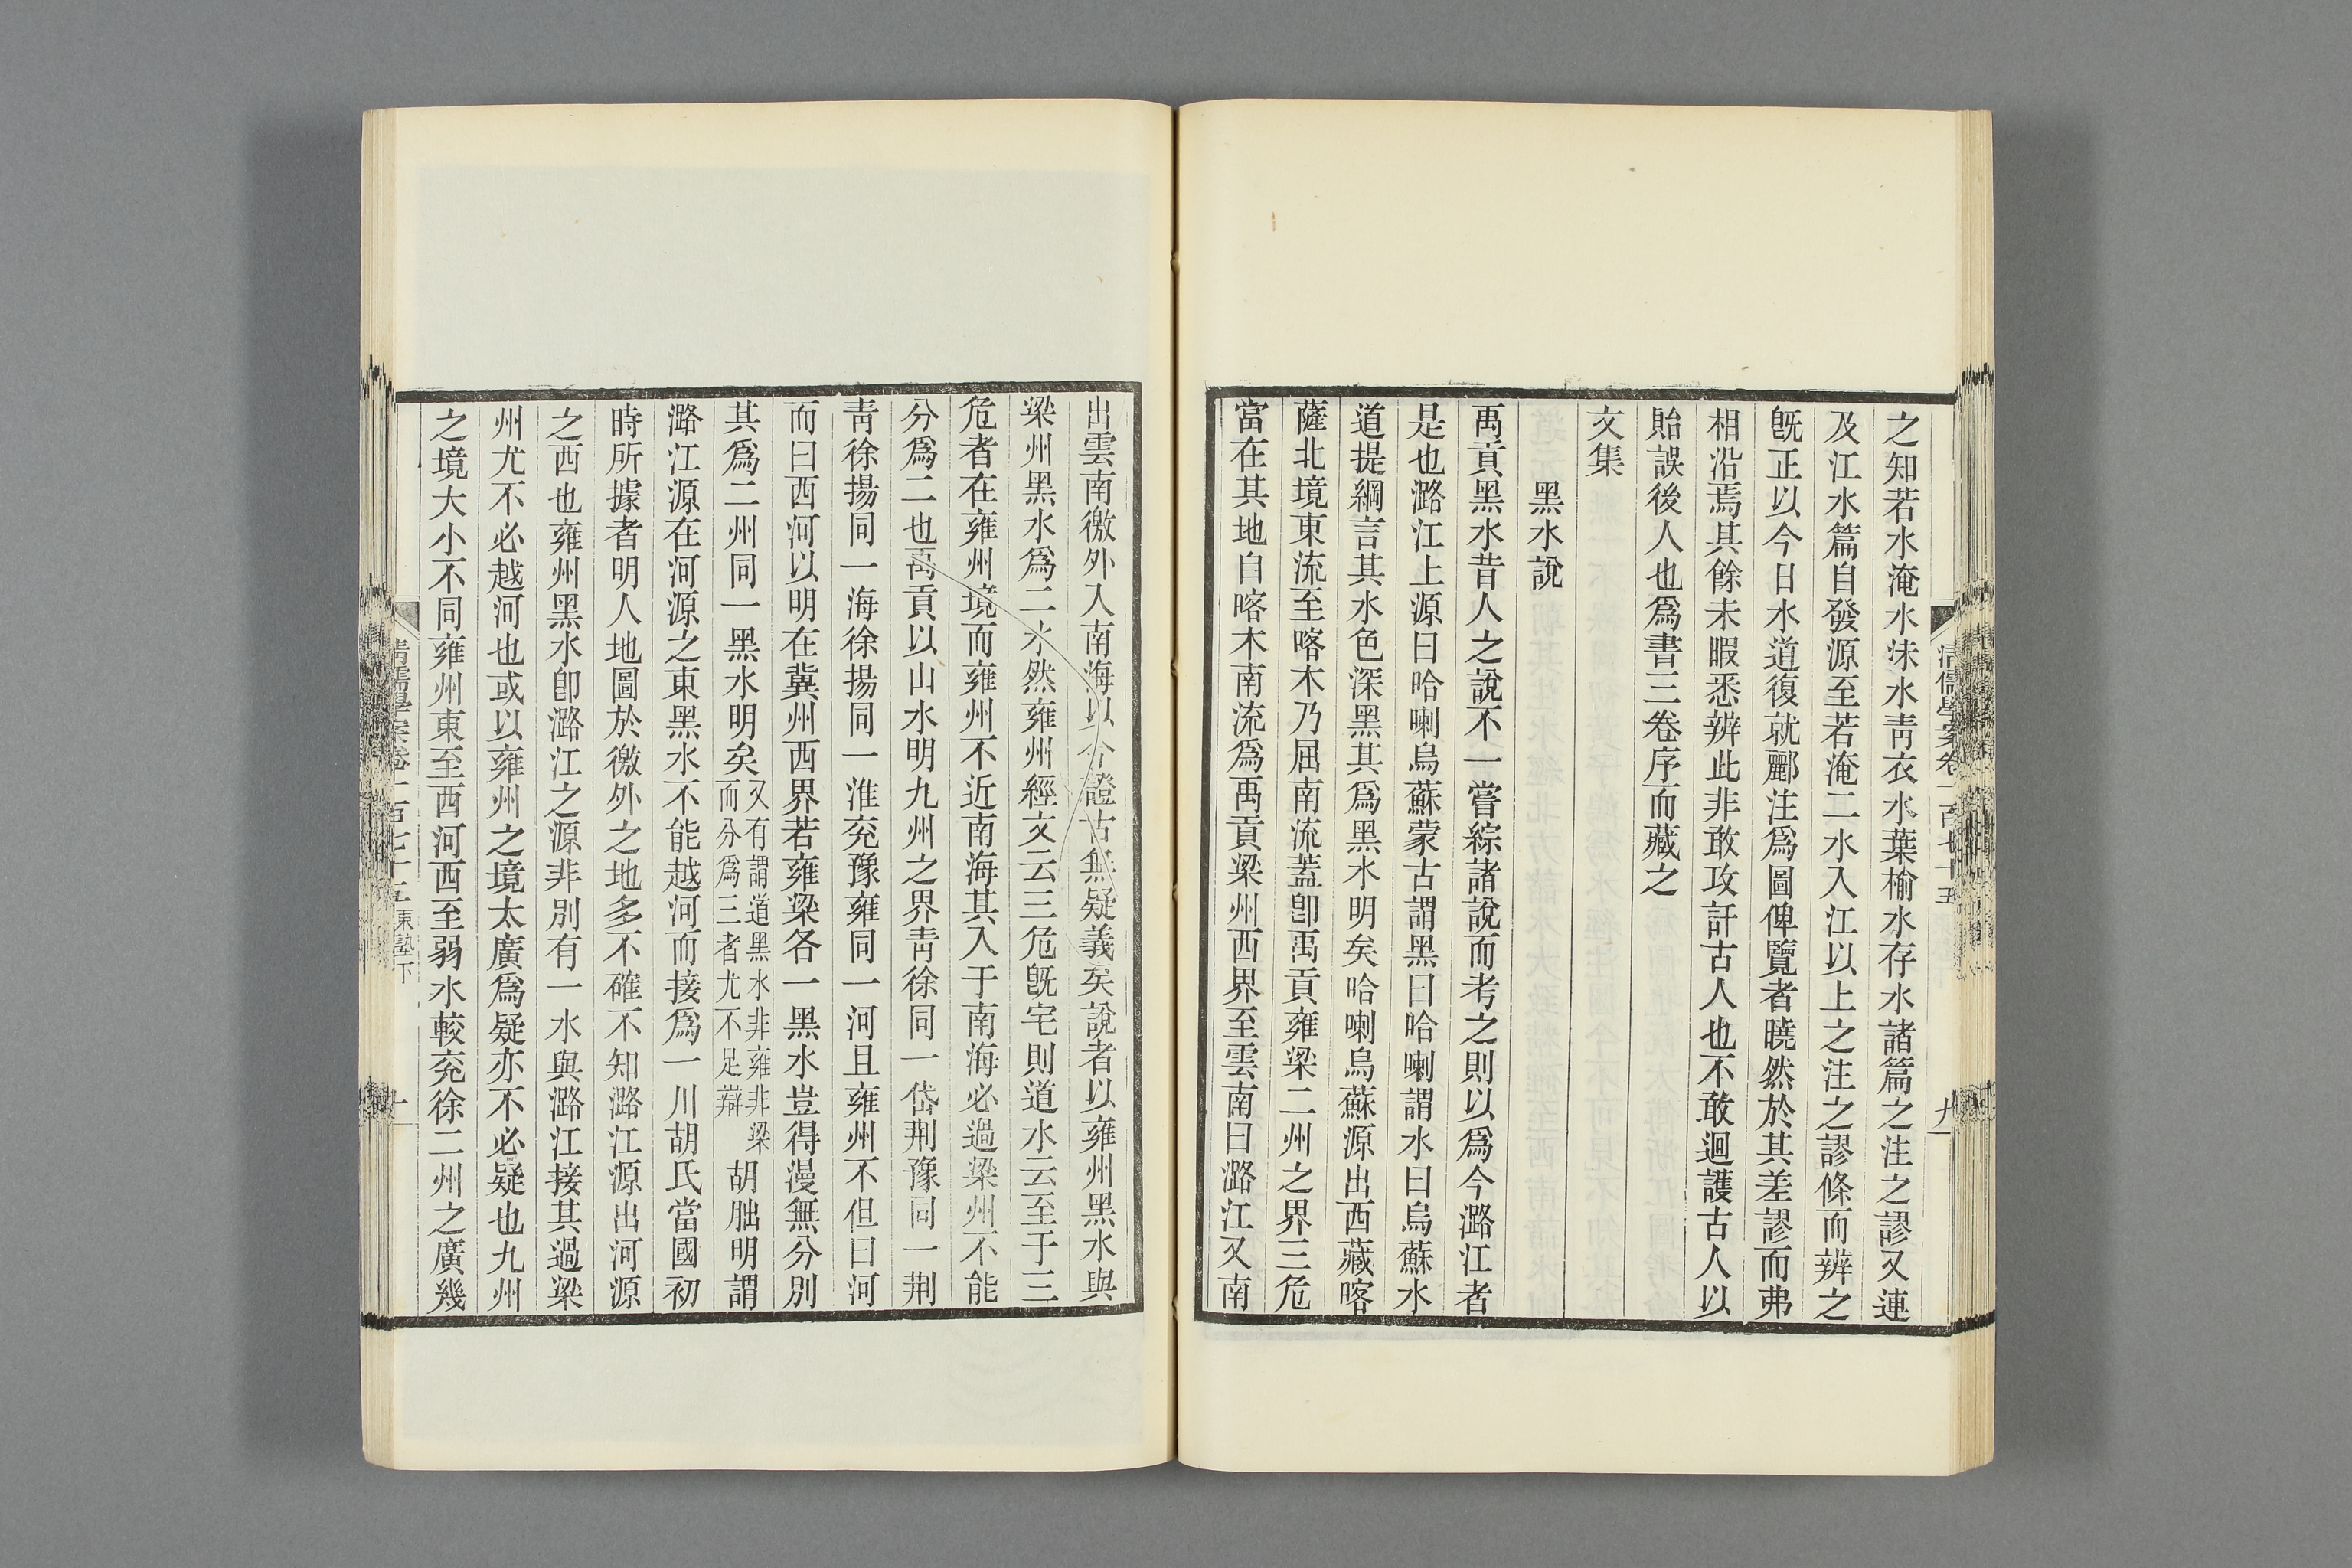 之知若水淹水沫水靑衣水葉榆水存水諸篇之注之謬又連
及江水篇自發源至若淹二水入江以上之注之謬條而辨之
旣正以今日水道復就酈注爲圖俾覽者曉然於其差謬而弗
相沿焉其餘未暇悉辨此非敢攻訐古人也不敢迴護古人以
貽誤後人也爲書三卷序而藏之
文集
黑水說
禹貢黑水昔人之說不一嘗綜諸說而考之則以爲今潞江者
是也潞江上源曰哈喇烏蘇蒙古謂黑曰哈喇謂水曰烏蘇水
道提綱言其水色深黑其爲黑水明矣哈喇烏蘇源出西藏喀
薩北境東流至喀木乃屈南流蓋卽禹貢雍梁二州之界三危
當在其地自喀木南流爲禹貢梁州西界至雲南曰潞江又南
出雲南徼外入南海以今證古無疑義矣說者以雍州黑水與
梁州黑水爲二水然雍州經文云三危旣宅則道水云至于三
危者在雍州境而雍州不近南海其入于南海必過梁州不能
分爲二也禹貢以山水明九州之界靑徐同一岱荆豫同一荆
靑徐揚同一海徐揚同一淮兗豫雍同一河且雍州不但曰河
而曰西河以明在冀州西界若雍梁各一黑水豈得漫無分別
其爲二州同一黑水明矣又有謂道黑水非雍非梁而分爲三者尤不足辯胡朏明謂
潞江源在河源之東黑水不能越河而接爲一川胡氏當國初
時所據者明人地圖於徼外之地多不確不知潞江源出河源
之西也雍州黑水卽潞江之源非別有一水與潞江接其過梁
州尤不必越河也或以雍州之境太廣爲疑亦不必疑也九州
之境大小不同雍州東至西河西至弱水較兗徐二州之廣幾
清儒學案卷一百七十五
九
清儒學案卷一百七十五 東塾下